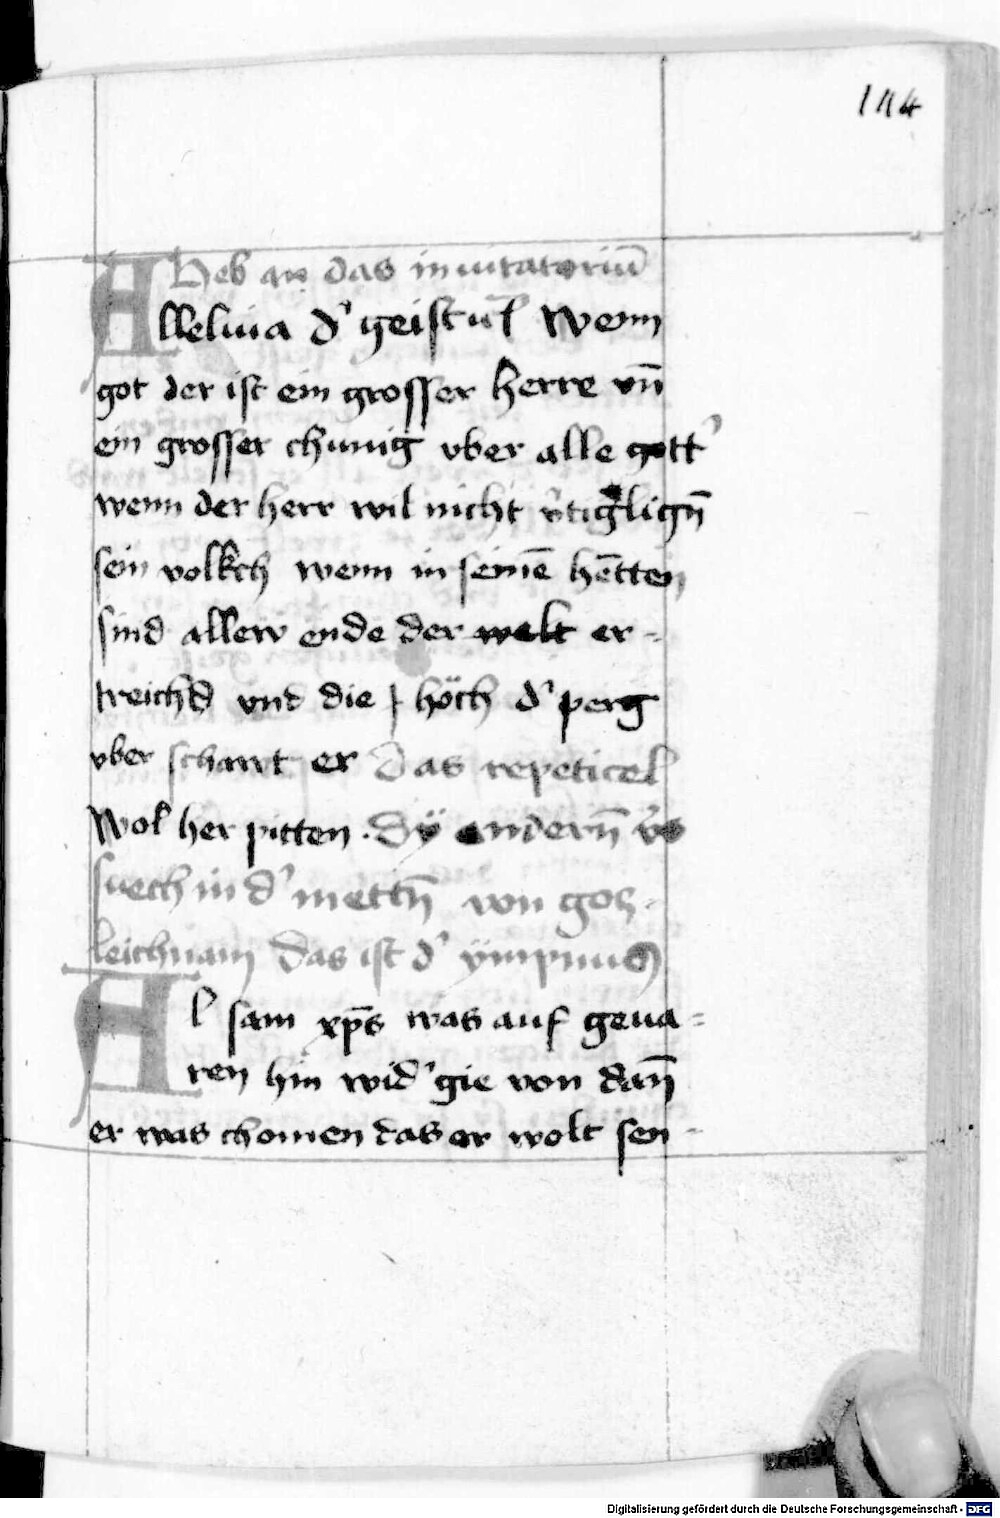 144
Heb an das inuitatoriū
Alleluia d' geist ut͛ Wenn
got der ist ein grosser herre vn̄
ein grosser chunig vber alle gott'
wenn der herr wil nicht
sein volkch wenn in seinē hētten
sind allew ende der welt er=
treichs vnd die höch d' perg
vber schawt er Das repeticel
Wol her pitten. Dÿ andern̄ v̄s
suech in d' mettn̄ von gots
leichnam Das ist d' ÿmpnus
Al sam xp̄s was auf geua=
ren hin wid' gie von dan̄
er was chomen das er wolt sen=
Digitalisierung gefördert durch die Deutsche Forschungsgemeinschaft - DFG